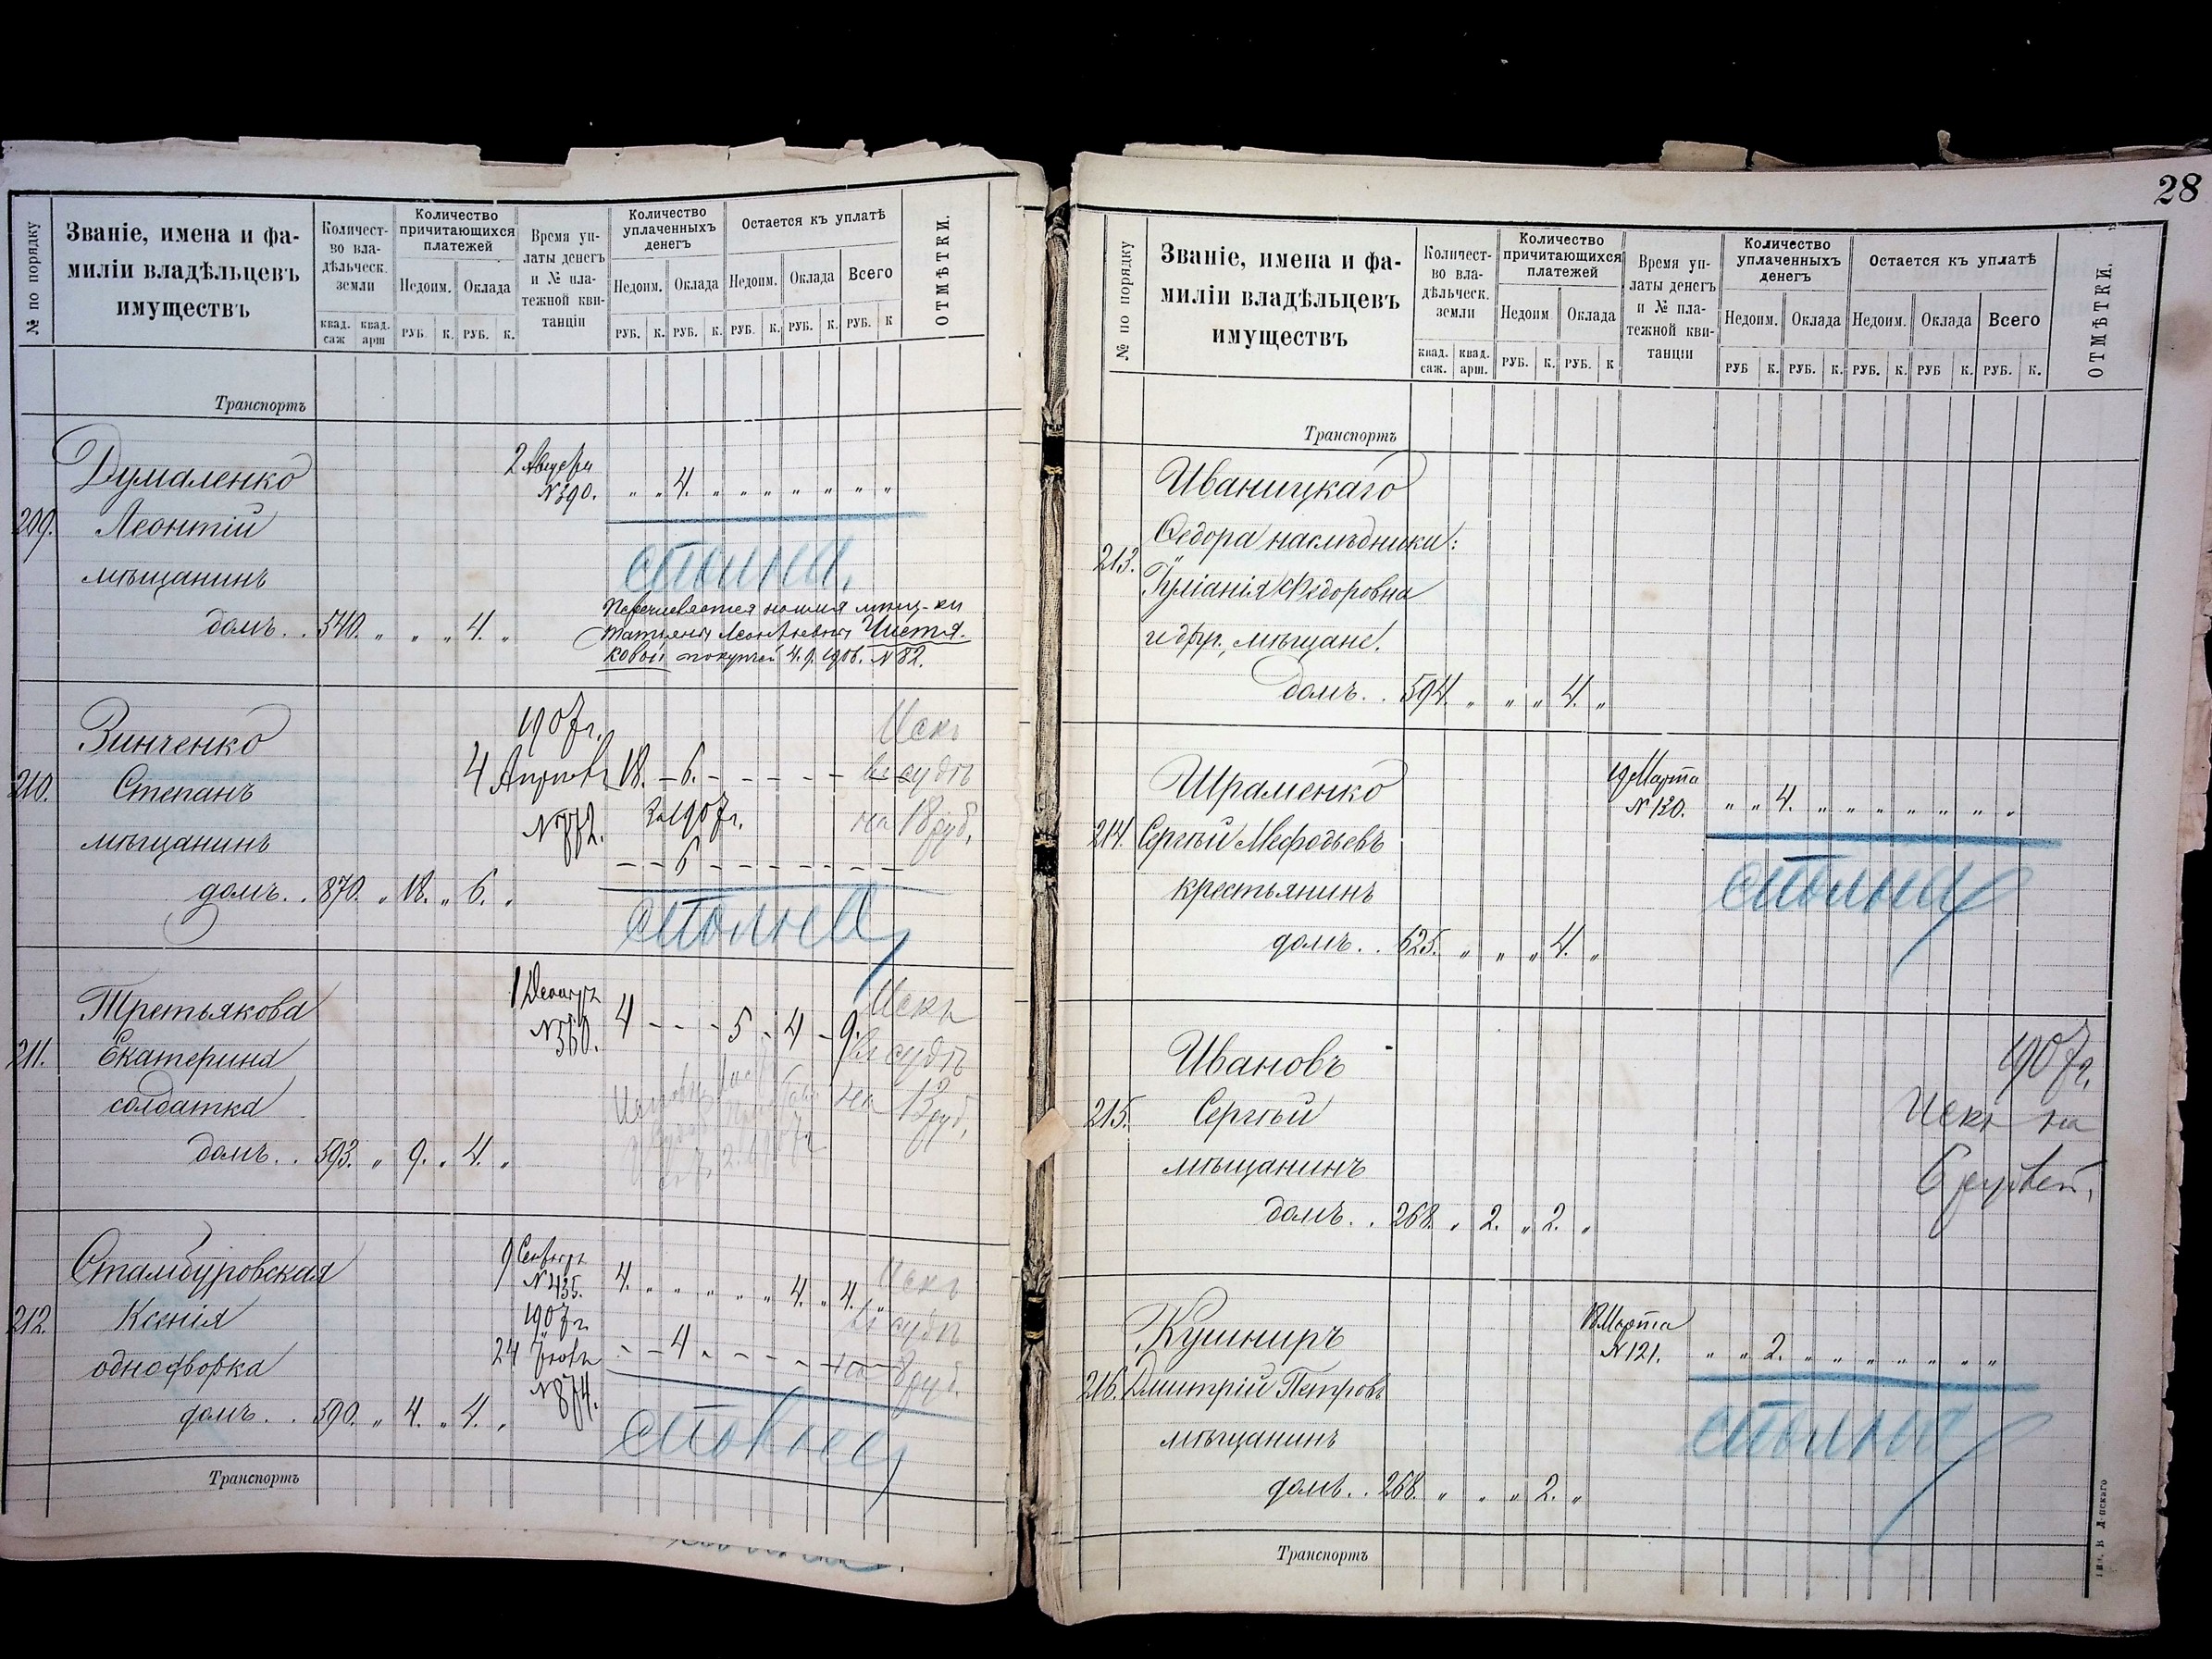 № по порядку
Званіе, имена и фа-
миліи владѣльцевъ
имуществъ
Количест-
во вла-
дѣльческ.
земли
квад. саж
квад. арш
Количество
причитающихся
платежей
Недоим. Оклада
РУБ. К. РУБ. К.
Время уп-
латы денегъ
и № пла-
тежной кви-
танціи
Количество
уплаченныхъ
денегъ
Недоим. Оклада
РУБ. К. РУБ. К.
Остается къ уплатѣ
Недоим. Оклада Всего
РУБ. К. РУБ. К. РУБ. К
ОТМѢТКИ.
Транспортъ
Думаленко
209. Леонтій
мѣщанинъ
домъ. . 540. „ „ „ 4. „
2
N 390. „ „ 4. „ „ „ „ „ „ „
Перечисляется на имя мѣщ-ки
Татьяны Леонтьевны Чистя-
ковой покупкой 4. 9. 1906. N 82.
Зинченко
210. Степанъ
мѣщанинъ
домъ. . 870. „ 18. „ 6. „
1907 г.
4 Апрѣля 18. – 6. – – – – – –
N 772. За 1907 г.
– – 6 – – – – – – –
Искъ
въ судѣ
на 18 руб.
Третьякова
211. Екатерина
солдатка
домъ. . 593. „ 9. „ 4. „
1 Декабря
N 560. 4 – – – 5 – 4 – 9.
Искъ
въ судѣ
на 13 руб.
Стамбуровская
212. Ксенія
однодворка
домъ. . 590. „ 4. „ 4. „
9 Сентябр
N 435. 4. „ „ „ „ „ 4. „ 4. „
1907 г.
24
N 874. – – 4 – – – – –
Искъ
въ судѣ
на 8 руб.
Транспортъ
28
№ по порядку
Званіе, имена и фа-
миліи владѣльцевъ
имуществъ
Количест-
во вла-
дѣльческ.
земли
квад. саж.
квад. арш.
Количество
причитающихся
платежей
Недоим Оклада
РУБ. К. РУБ. К
Время уп-
латы денегъ
и № пла-
тежной кви-
танціи
Количество
уплаченныхъ
денегъ
Недоим. Оклада
РУБ К. РУБ. К.
Остается къ уплатѣ
Недоим. Оклада Всего
РУБ. К. РУБ К. РУБ. К.
ОТМѢТКИ.
Транспортъ
Иваницкаго
Федора наслѣдники:
213. Іуліанія Федоровна
и др., мѣщане.
домъ. . 594. „ „ „ 4. „
Шраменко
214. Сергѣй Мефодьевъ
крестьянинъ
домъ. . 625. „ „ „ 4. „
19 Марта
N 120. „ „ 4. „ „ „ „ „ „ „
Ивановъ
215. Сергѣй
мѣщанинъ
домъ. . 268. „ 2. „ 2. „
1907 г.
Искъ на
6 рублей.
Кушниръ
216. Дмитрій Петровъ
мѣщанинъ
домъ. . 268. „ „ „ 2. „
18 Марта
N 121. „ „ 2. „ „ „ „ „ „ „
Транспортъ